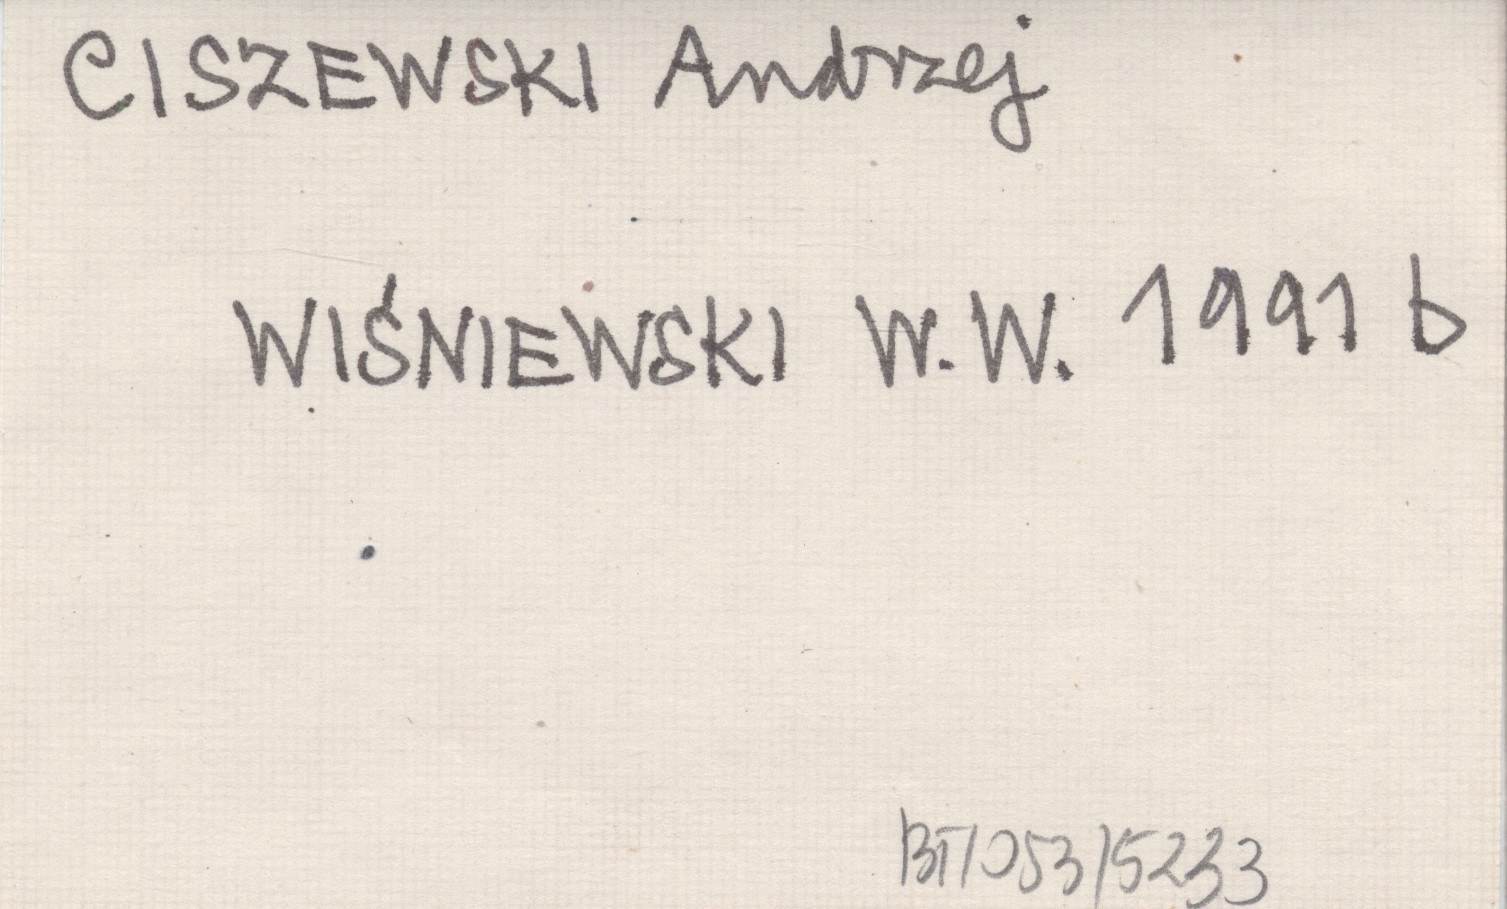 CISZEWSKI Andrzej
WIŚNIEWSKI W.W. 1991 b
BT/053/5233